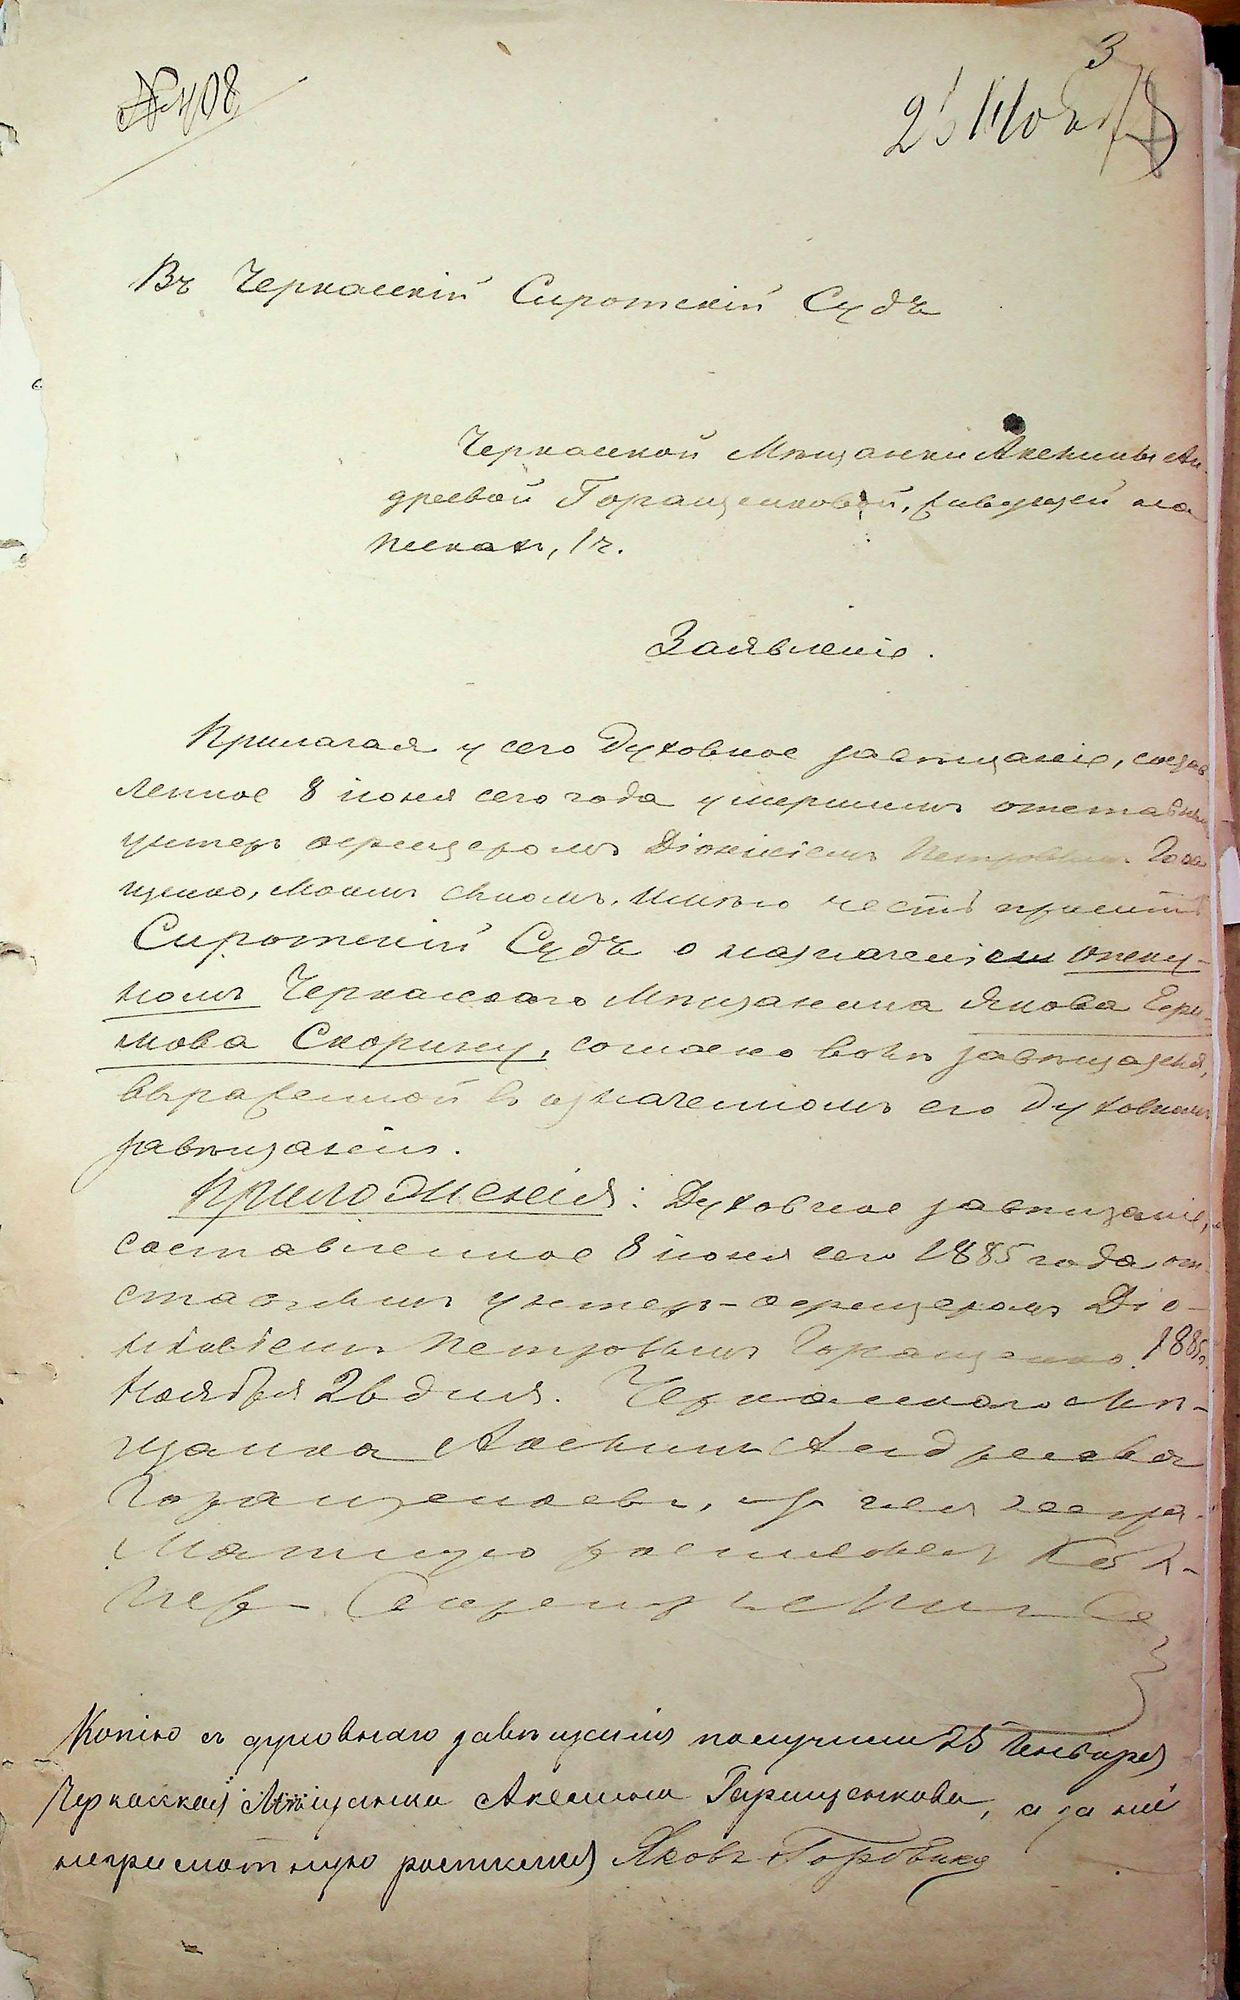 3
№ 408
Въ Черкасскій Сиротскій Судъ
Черкасской Мѣщанки Аксиньи Ан-
дреевой Горащенковой, живущей на
пескахъ, 1 ч.
Заявленіе.
Прилагая у сего духовное завѣщаніе, состав
ленное 8 іюня сего года умершимъ отставнымъ
унтеръ офицеромъ Діонисіемъ Петровымъ Гора
щенко, моимъ сыномъ, имѣю честь просить
Сиротскій Судъ о назначеніи опеку-
номъ Черкасскаго Мѣщанина Якова Ефи-
мова Скорину, согласно воли завѣщателя,
выраженной въ означенномъ его духовномъ
завѣщаніи.
Приложенія: Духовное завѣщаніе,
составленное 8 іюня сего 1885 года от-
ставнымъ унтеръ-офицеромъ Діо-
нисіемъ Петровымъ Горащенко. 1885 г.
Ноября 26 дня. Черкасская Мѣ-
щанка Аксинья Андреева
Горащенкова, а за нея негра-
мотную росписался
Копію съ духовнаго завѣщанія получила 25 Января
Черкасская Мѣщанка Аксинья Горащенкова, а за ней
неграмотную росписался Яковъ